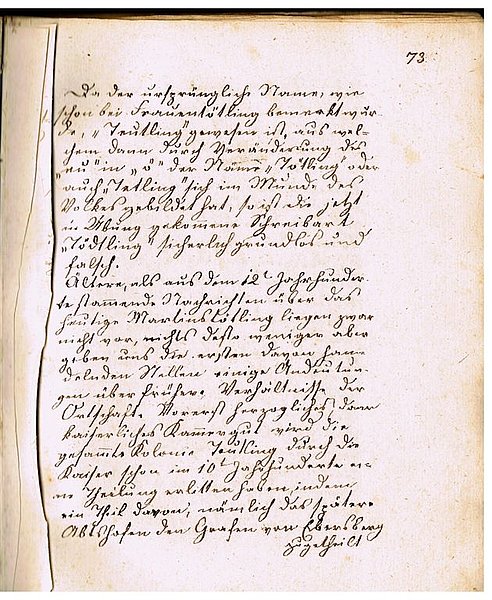 73
Da der ursprüngliche Name, wie
schon bei Frauentötling bemerkt wur-
de, „Teutling" gewesen ist, aus wel-
chem dann durch Veränderung des
„eu" in „ö" der Name „Tötling" oder
auch „Tetling" sich im Munde des
Volkes gebildet hat, so ist die jetzt
in Übung gekomene Schreibart
„Tödtling" sicherlich grundlos und
falsch.
Ältere, als aus dem 12t Jahrhunder-
te stammende Nachrichten über das
heutige Martinstötling liegen zwar
nicht vor, nichts desto weniger aber
geben uns die ersten davon han-
delnden Stellen einige Andeutun-
gen über frühere Verhältnisse der
Ortschaft. Vorerst herzogliches dann
kaiserliches Kammergut wird die
gesammte Kolonie Teutling durch die
Kaiser schon im 10t Jahrhunderte ei-
ne Theilung erlitten haben, indem
ein Theil davon, nämlich das spätere
Abtshofen den Grafen von Ebersberg
zugetheilt